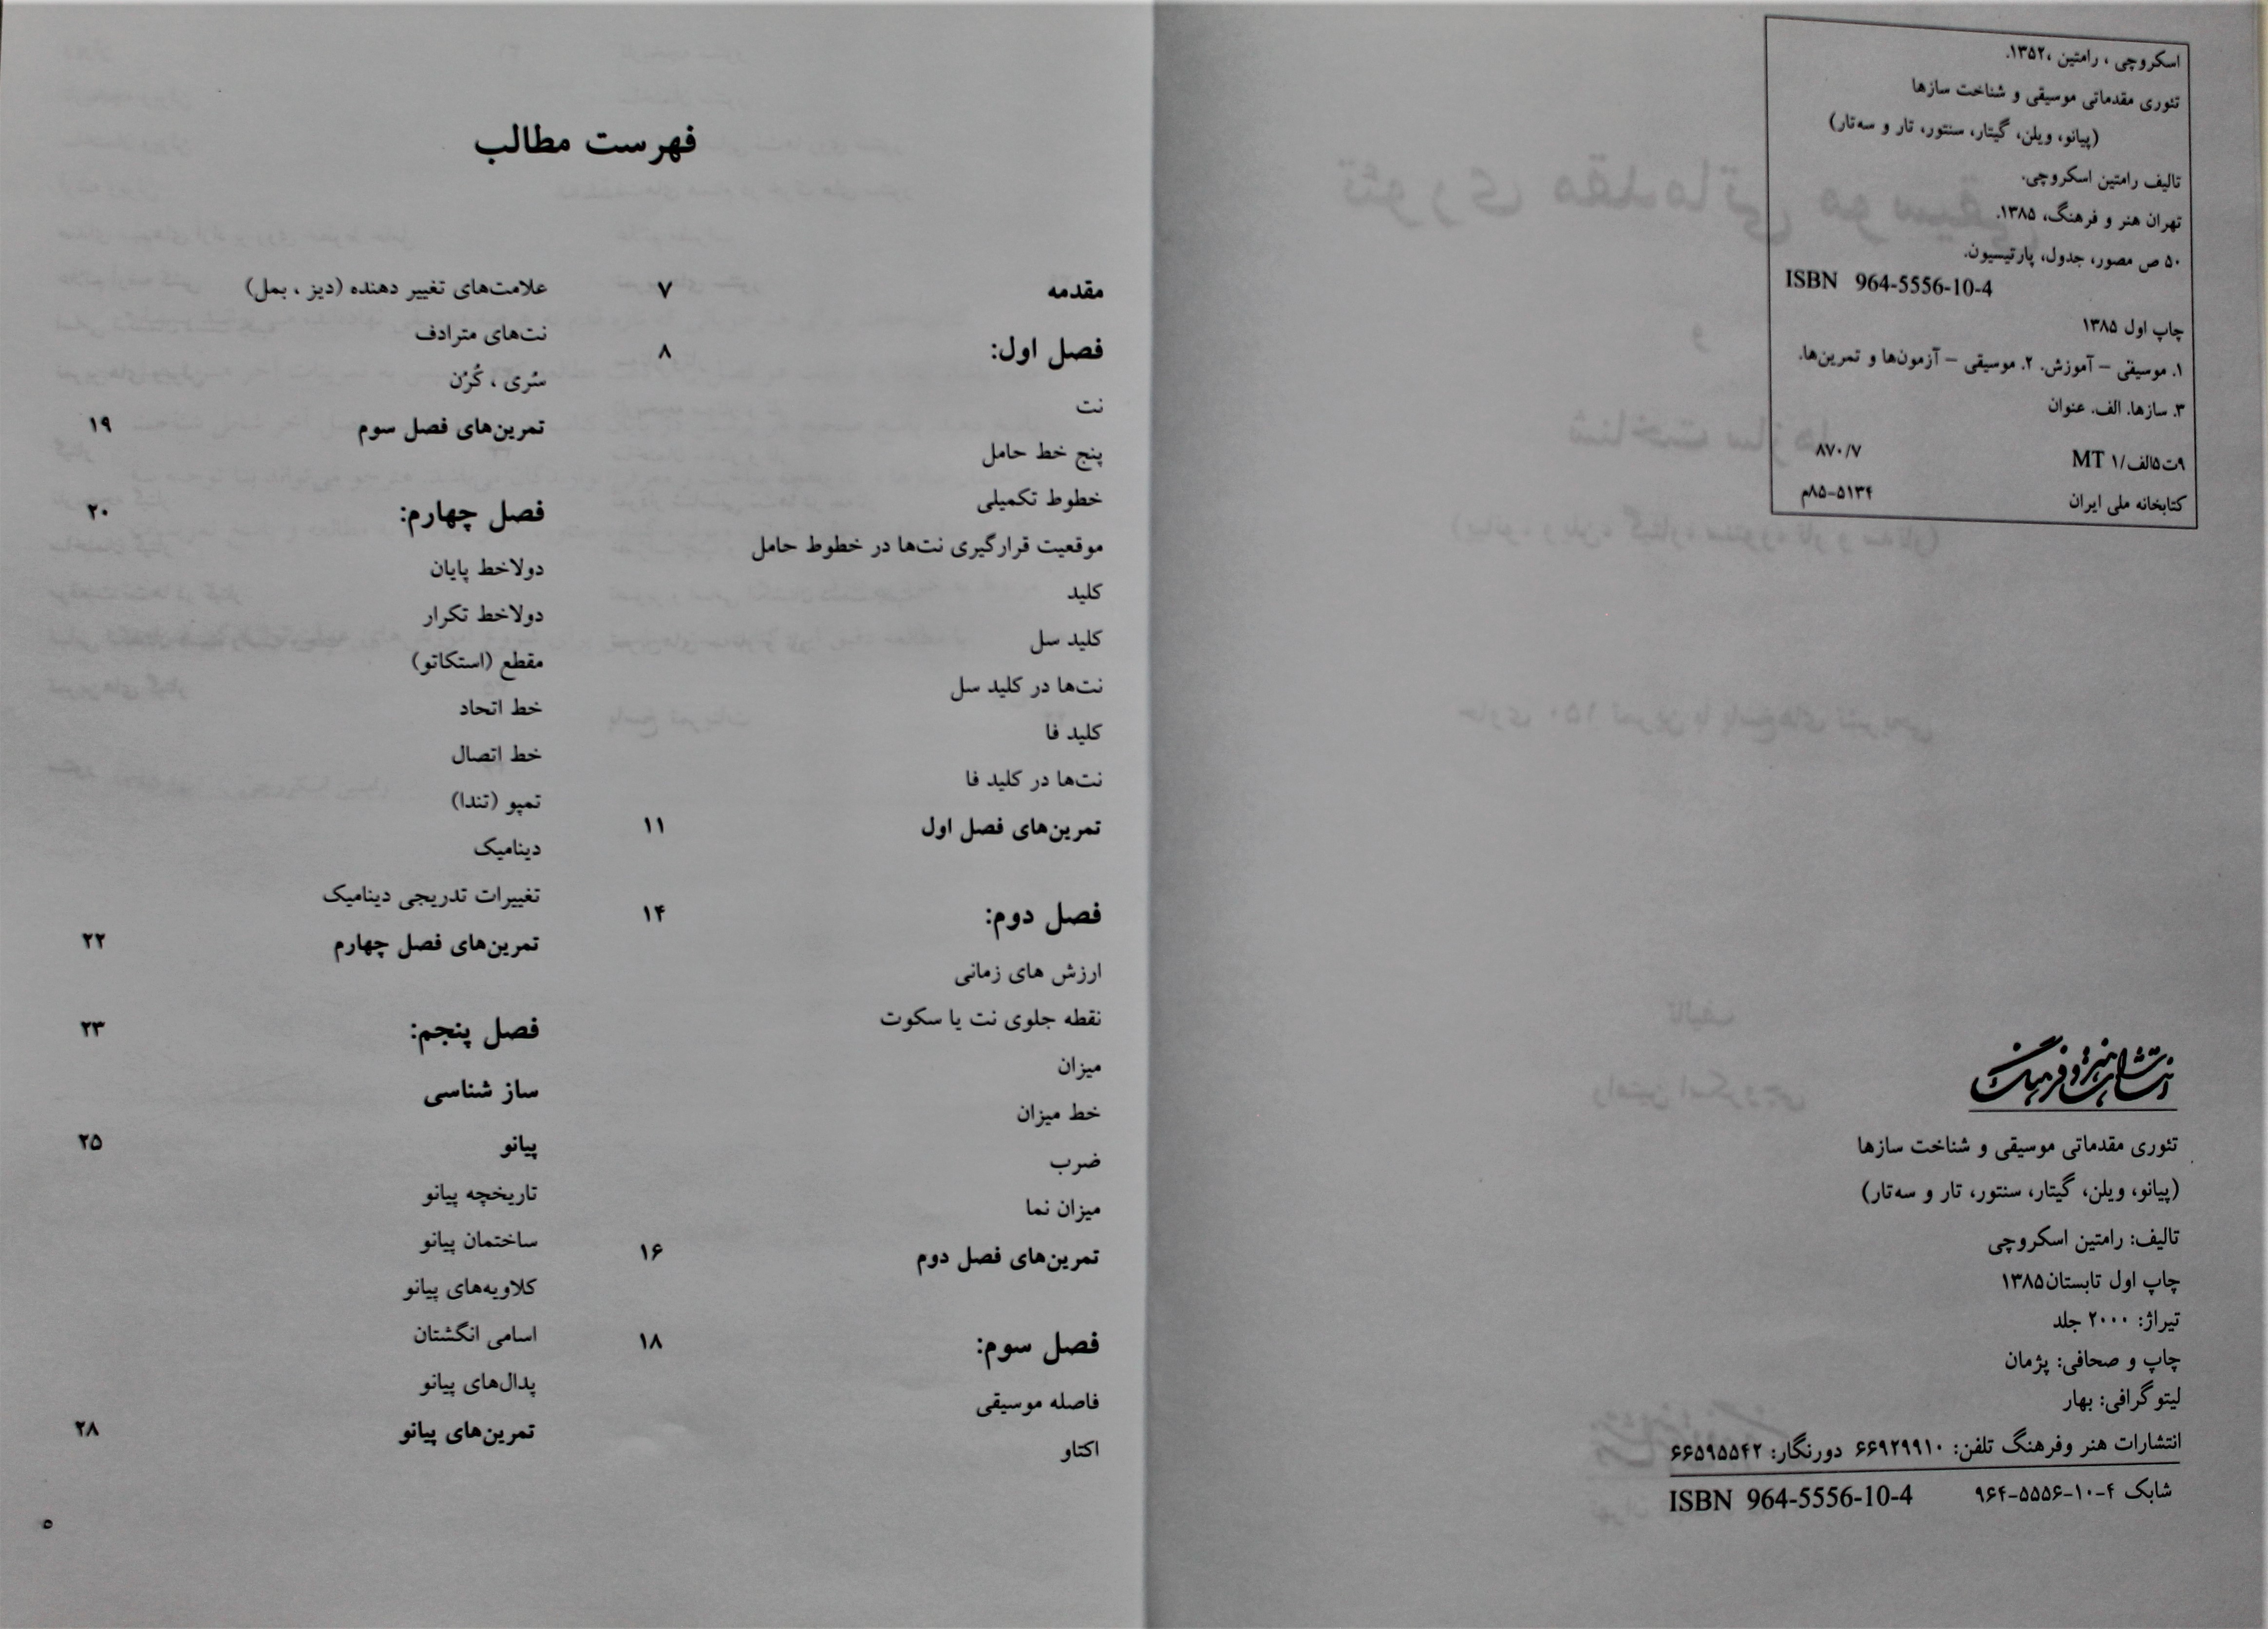 اسکروچی ، رامتین ،۱۳۵۲.
تئوری مقدماتی موسیقی و شناخت سازها
(پیانو، ویلن، گیتار، سنتور، تار و سه‌تار)
تالیف رامتین اسکروچی.
تهران هنر و فرهنگ، ۱۳۸۵.
۵۰ ص مصور، جدول، پارتیسیون.
ISBN 964-5556-10-4
چاپ اول ۱۳۸۵
۱. موسیقی – آموزش. ۲. موسیقی – آزمون‌ها و تمرین‌ها.
۳. سازها. الف. عنوان
۹ت۵الف/۱ MT ۸۷۰/۷
کتابخانه ملی ایران ۸۵-۵۱۳۴م
انتشارات هنر و فرهنگ
تئوری مقدماتی موسیقی و شناخت سازها
(پیانو، ویلن، گیتار، سنتور، تار و سه‌تار)
تالیف: رامتین اسکروچی
چاپ اول تابستان۱۳۸۵
تیراژ: ۲۰۰۰ جلد
چاپ و صحافی: پژمان
لیتو گرافی: بهار
انتشارات هنر وفرهنگ تلفن: ۶۶۹۲۹۹۱۰ دورنگار: ۶۶۵۹۵۵۴۲
شابک ۴-۱۰-۵۵۵۶-۹۶۴ ISBN 964-5556-10-4
فهرست مطالب
مقدمه ۷
فصل اول: ۸
نت
پنج خط حامل
خطوط تکمیلی
موقعیت قرارگیری نت‌ها در خطوط حامل
کلید
کلید سل
نت‌ها در کلید سل
کلید فا
نت‌ها در کلید فا
تمرین‌های فصل اول ۱۱
فصل دوم: ۱۴
ارزش های زمانی
نقطه جلوی نت یا سکوت
میزان
خط میزان
ضرب
میزان نما
تمرین‌های فصل دوم ۱۶
فصل سوم: ۱۸
فاصله موسیقی
اکتاو
علامت‌های تغییر دهنده (دیز ، بمل)
نت‌های مترادف
سُری ، کُرُن
تمرین‌های فصل سوم ۱۹
فصل چهارم: ۲۰
دولاخط پایان
دولاخط تکرار
مقطع (استکاتو)
خط اتحاد
خط اتصال
تمپو (تندا)
دینامیک
تغییرات تدریجی دینامیک
تمرین‌های فصل چهارم ۲۲
فصل پنجم: ۲۳
ساز شناسی
پیانو ۲۵
تاریخچه پیانو
ساختمان پیانو
کلاویه‌های پیانو
اسامی انگشتان
پدال‌های پیانو
تمرین‌های پیانو ۲۸
۵